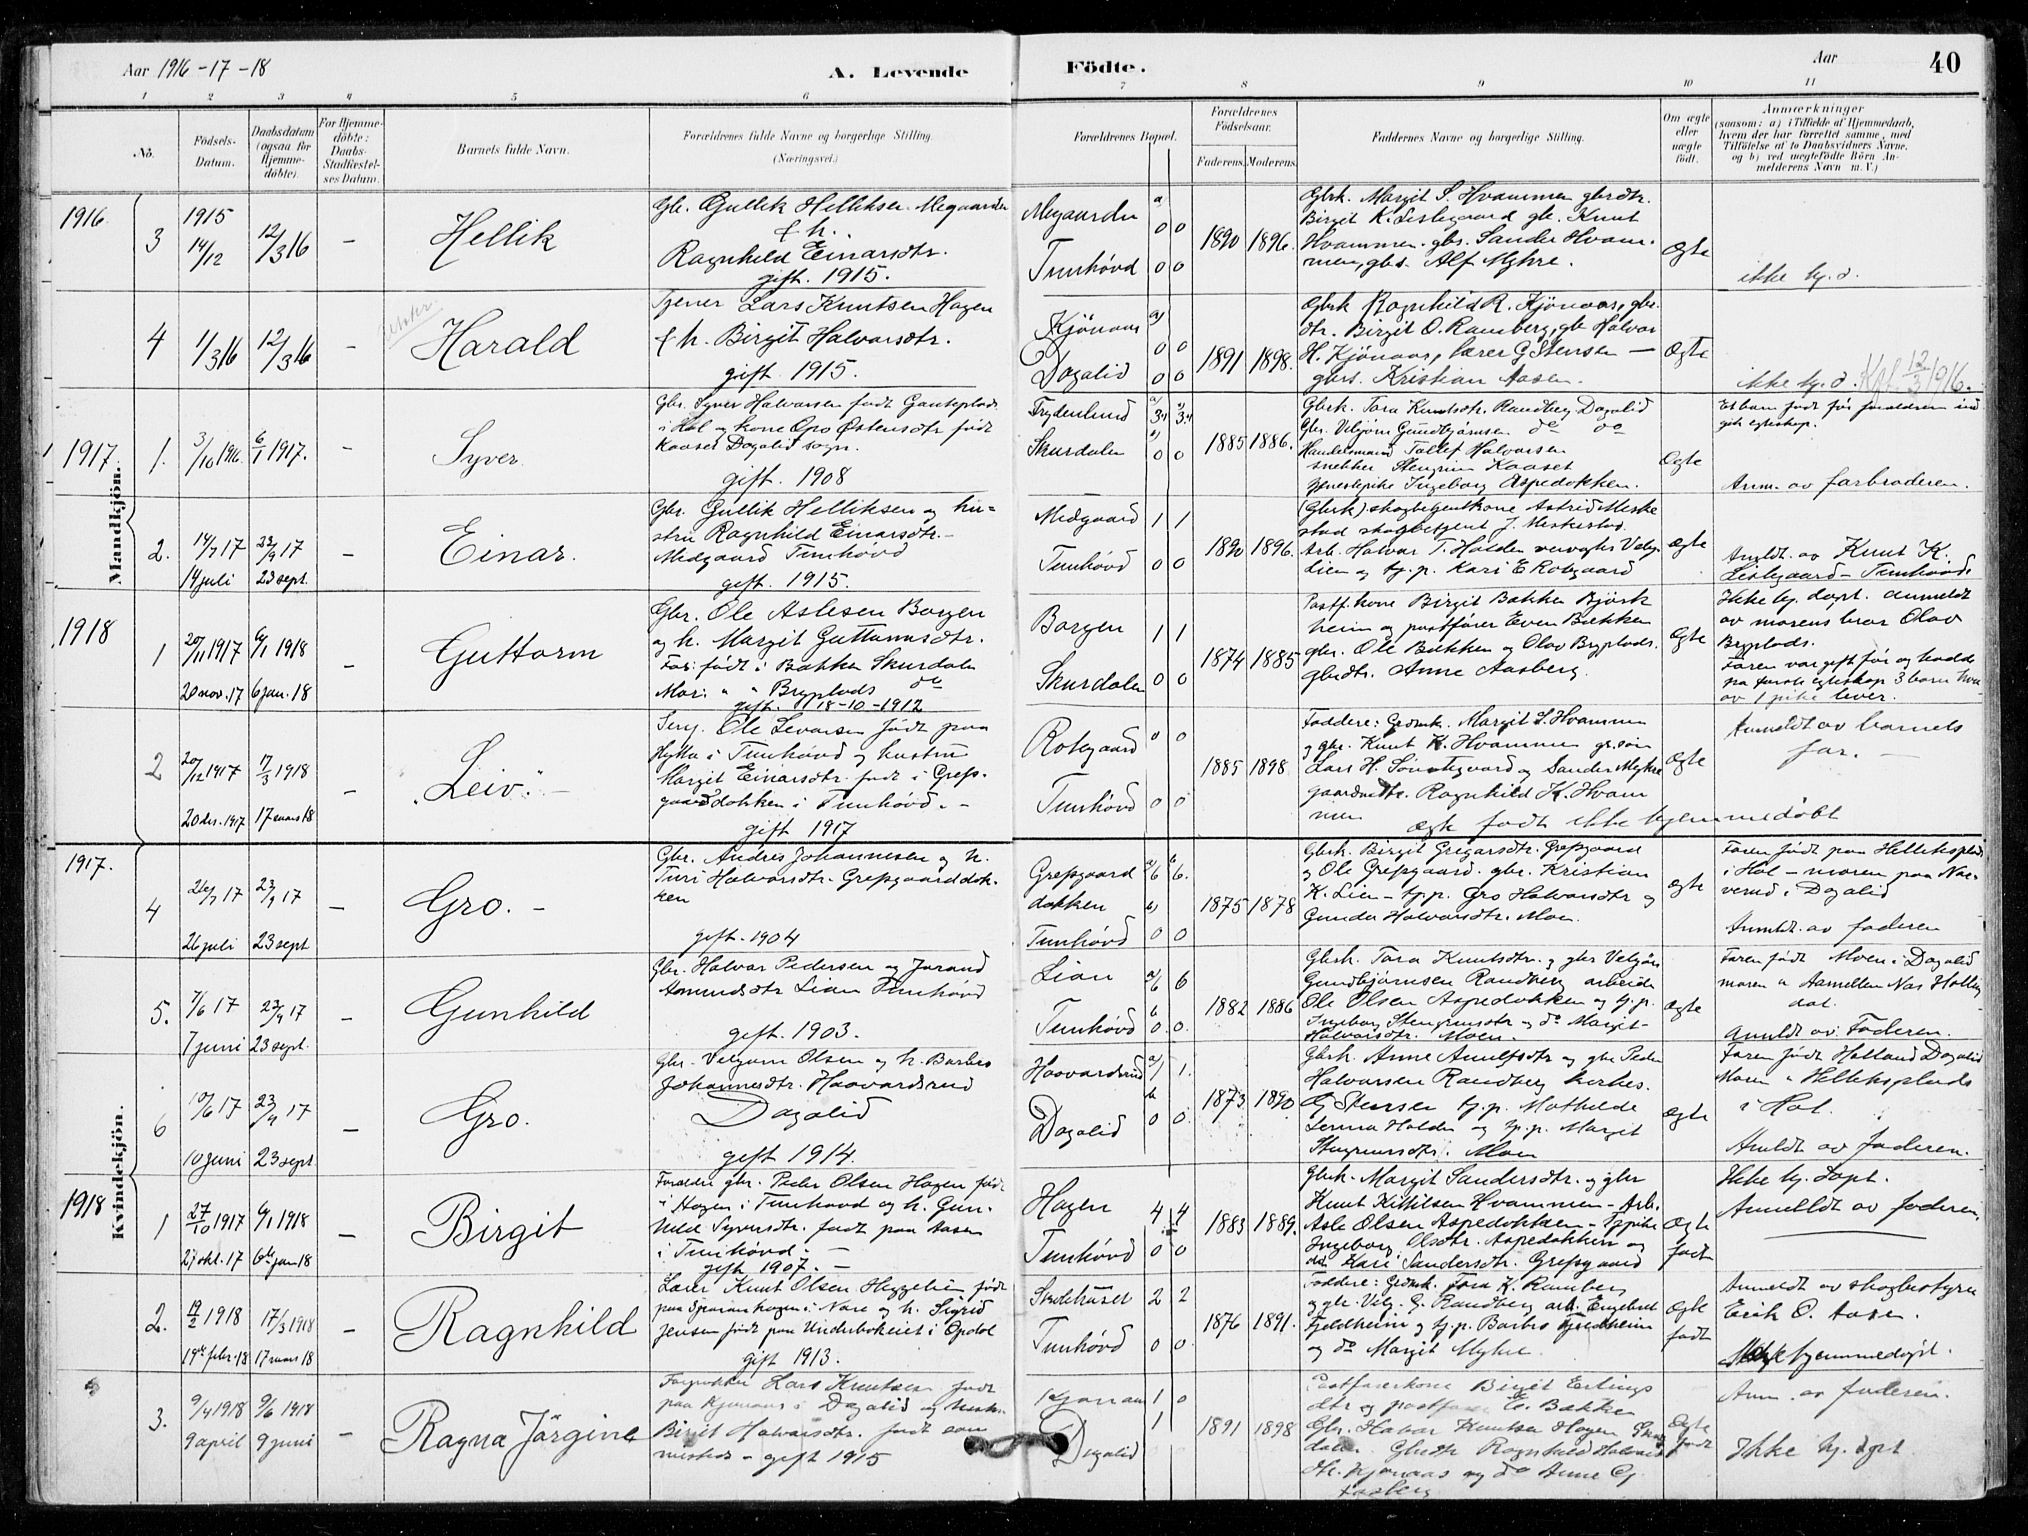 Aar 1916 - 17 - 18
A. Levende Födte.
Aar
40
1 2 3 4 5 6 7 8 9 10 11
No.
Födsels-Datum.
Daabsdatum (ogsaa for Hjemmedöbte).
For Hjemmedöbte: Daabs-Stadfæstelses Datum.
Barnets fulde Navn.
Forældrenes fulde Navne og borgerlige Stilling. (Næringsvei.)
Forældrenes Bopæl.
Forældrenes Födselsaar.
Faderens. Moderens.
Faddernes Navne og borgerlige Stilling.
Om ægte eller uægte født.
Anmærkninger
(saasom: a) i Tilfælde af Hjemmedaab,
hvem der har forrettet samme, med
Tilföielse af to Daabsvidners Navne,
og b) ved uægtefödte Börn An-
melderens Navn m. V.)
Mandkjön.
1916.
3
1915
14/12
12/3 16
–
Hellik
Gbr. Gullik Helliksen Megaarden
& h.
Ragnhild Einarsdtr.
gift. 1915.
Megaarden
Tunhövd
a
0 0
0 0
1890 1896.
Gbrk. Margit S. Hvammen gbrdtr.
Birgit K. Lislegaard gbr. Knut
Hvammen. gbs. Sander Hvam-
men, gbs. Alf Myhre.
Ægte
ikke hj.d.
4
1/3 16
12/3 16
–
Harald
Tjener Lars Knutsen Hagen
& h. Birgit Halvorsdtr.
gift. 1915.
Kjönaas
Dagalid
a)
0 0
0 0
1891 1898.
Gbrk Ragnhild R. Kjönaas, gbr.
dtr. Birgit O. Ramberg, gbr Halvor
H. Kjönaas, lærer G Stensen –
gbrs. Kristian Aasen.
Ægte
ikke hj.d. Kgf. 12/3 1916.
1917.
1.
3/10 1916.
6/1 1917.
–
Syver
Gbr. Syver Halvorsen født Gauteplads
i Hol og kone Gro Østensdtr født
Kaaset Dagalid sogn.
gift. 1908
Frydenlund
Skurdalen
0 0
1885 1886.
Gbrk. Tora Knutsdtr. Randberg Dagalid
Gbr. Velgjörn Gundbjörnsen do do
Handelsmand Tollef Halvorsen
snekker Stengrim Kaaset
tjenestepike Ingeborg Aspedokken.
Ægte
Et barn født før forældrene ind
gik egteskap.
Anm. av farbroderen.
2.
14/7 17
23/9 17
14 juli 23 sept.
–
Einar.
Gbr. Gullik Helliksen og hu-
stru Ragnhild Einarsdtr. –
Medgaard Tunhövd
gift. 1915.
Medgaard
Tunhövd
1 1
0 0
1890 1896.
(Gbrk) skogbetjentkone Astrid Meske
stad skogbetjent J. Meskestad.
Arb. Halvor T. Halden
Lien og tj.p. Kari E Rotegaard
Ægte
Anmldt. av Knut K.
Lislegaard – Tunhövd.
1918
1
20/11 1917
6/1 1918
20 nov. 17 6 jan. 18
–
Guttorm
Gbr. Ole Aslesen Borgen
og h. Margit Guttormsdtr.
Far: født i Bakken Skurdalen
Mor: " " Bryplads do
gift. 18-10-1912
Borgen
Skurdalen
1 1
0 0
1874 1885
Postf. kone Birgit Bakken Björk
heim og postfører Even Bakken
gbr. Ole Bakken og Olav Bryplads.
gbrdtr. Anne Aasberg.
Ægte
Ikke hj. døpt. anmeldt
av morens bror Olav
Bryplads.
Faren var gift før og hadde
paa første egteskap 3 barn hvor
av 1 pike lever.
2
20/12 1917
17/3 1918
20 des. 1917 17 mars 18
–
"Leiv". –
Serg. Ole Levorsen født paa
Hytta i Tunhövd og hustru
Margit Einarsdtr. født i Grefs-
gaarddokken i Tunhövd. –
gift 1917
Rotegaard
Tunhövd
0 0
0 0
1885 1898
Faddere: Grdmk. Margit S. Hvammen
og gbr. Knut K. Hvammen gr. søn
Lars H. Sønstegaard og Sander Myhre
gaardmdtr. Ragnhild K. Hvam
men
Ægte
Anmeldt av barnets
far. –
Ægte født ikke hjemmedöbt
Kvindekjön.
1917.
4
26/7 17
23/9 17
26 juli 23 sept
–
Gro. –
Gbr. Andres Johannesen og h.
Turi Halvorsdtr. Grefsgaarddok-
ken
gift. 1904
Grefsgaard
dokken
Tunhövd
6 6.
0 0
1875 1878
Gbrk. Birgit Gregarsdtr. Grefsgaard
og Ole Grefsgaard. gbr. Kristian
K. Lien – tj.p. Gro Halvorsdtr og
Gunda Halvorsdtr. Moen.
Ægte
Faren født paa Helleksplads
i Hol – moren paa Næ-
verud i Dagalid
Anmldt. av faderen
5.
7/6 17
23/9 17
7 juni 23 sept.
–
Gunhild
Gbr. Halvor Pedersen og Jorand
Aamundsdtr Lian Tunhövd
gift. 1903.
Lian
Tunhövd
6 6
0 0.
1882 1886
Gbrk. Tora Knutsdtr. og gbr Velgjön
Gundbjørnsen Randberg arbeider
Ole Olsen Aspedokken og tj.p.
Ingeborg Stengrimsdtr og do Margit
Halvorsdtr. Moen.
Ægte
Faren født Moen i Dagalid
moren a Nes Halling
dal.
Anmldt av: Faderen.
6
10/6 17
23/9 17
10 juni 23 sept
–
Gro.
Gbr. Velgum Olsen og h. Barbro
Johannesdtr. Haavardsrud
Dagalid
gift 1914.
Haavardsrud
Dagalid
1 1.
0 0.
1873 1890
Gbrk. Anne Arnulfsdtr og gbr Peder
Halvorsen Randberg kirkes.
G Stensen tj.p. Mathilde
Halden og tj.p. Margit
Stengrimsdtr. Moen
Ægte
Faren født Halland Dagalid
Moren " Helleksplads
i Hol.
Anmldt av faderen.
1918
1
27/10 1917
6/1 1918
27 okt. 17 6te jan 18
–
Birgit
Foreldre gbr. Peder Olsen Hagen født
i Hagen i Tunhövd og h. Gun-
hild Syversdtr. født paa Aasen
i Tunhövd. –
gift. 1907. –
Hagen
Tunhövd
4 4
0 0
1883 1889.
Gbrk. Margit Sandersdtr. og gbr
Knut Kittilsen Hvammen – Arb.
Asle Olsen Aspedokken – tj.pike
Ingeborg Olsdtr. Aspedokken og
do Kari Sandersdtr. Grefsgaard
Ægte
født
Ikke hj. døpt.
Anmeldt av faderen.
2.
19/2 1918
17/3 1918
19de febr. 18 17 mars 18
–
Ragnhild
Lærer Knut Olsen Heggelien født
paa Sporanhagen i Nore og h. Sigrid
Jensen født paa Underbakeiet i Opdal
Gift 1913.
Skolehuset
Tunhövd
2 2
0 0
1876 1891.
Faddere: Grdmk. Tora K. Ramberg
og gbr. Velg. G. Randberg arb. Engebret
Fjeldheim og tj.p. Barbro Fjeldheim
og do Margit Myhre.
Ægte
født
Anmeldt av skogbestyrer
Erik O. Aasen.
Ikke hjemmedøpt.
3.
9/4 1918
9/6 1918
9 april 9 juni
–
Ragna Jörgine
Lars Knutsen født
paa Kjønaas i Dagalid og hustr.
Birgit Halvorsdtr. født
– gift 1915
Kjønaas
Dagalid
1 0
1
1891 1898
Postførerkone Birgit Erlings
dtr og postfører E. Bakken
Gbr. Halvor Knutsen Hagen Skur
dalen. Gbrdtr Ragnhild Halvors
dtr. Kjønaas og do Anne G.
Aasberg
Ægte
født
Anm. av faderen.
Ikke hj. døpt